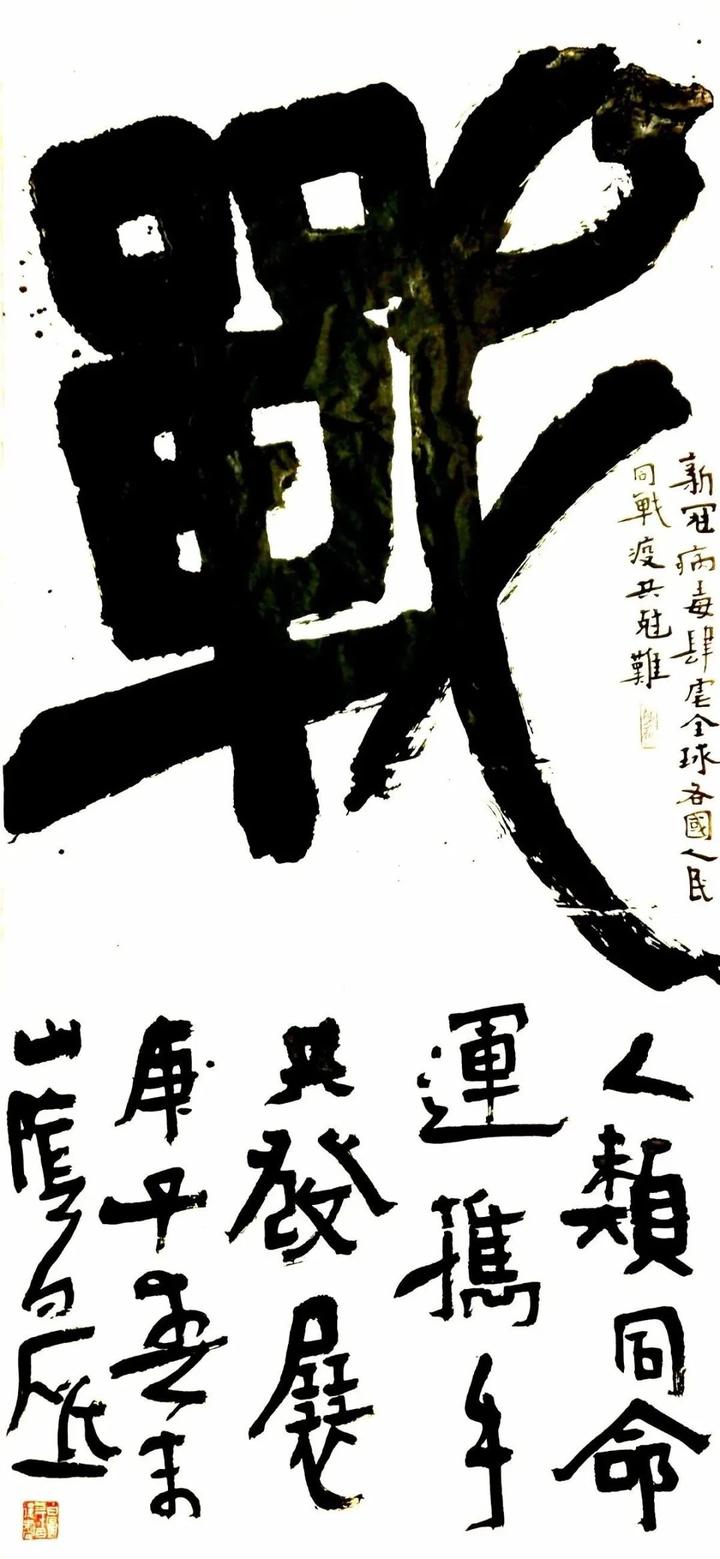 戰
新冠病毒肆虐全球各國人民
同戰疫共尅難
人類同命
運攜手
共發展
庚子春末
山陰